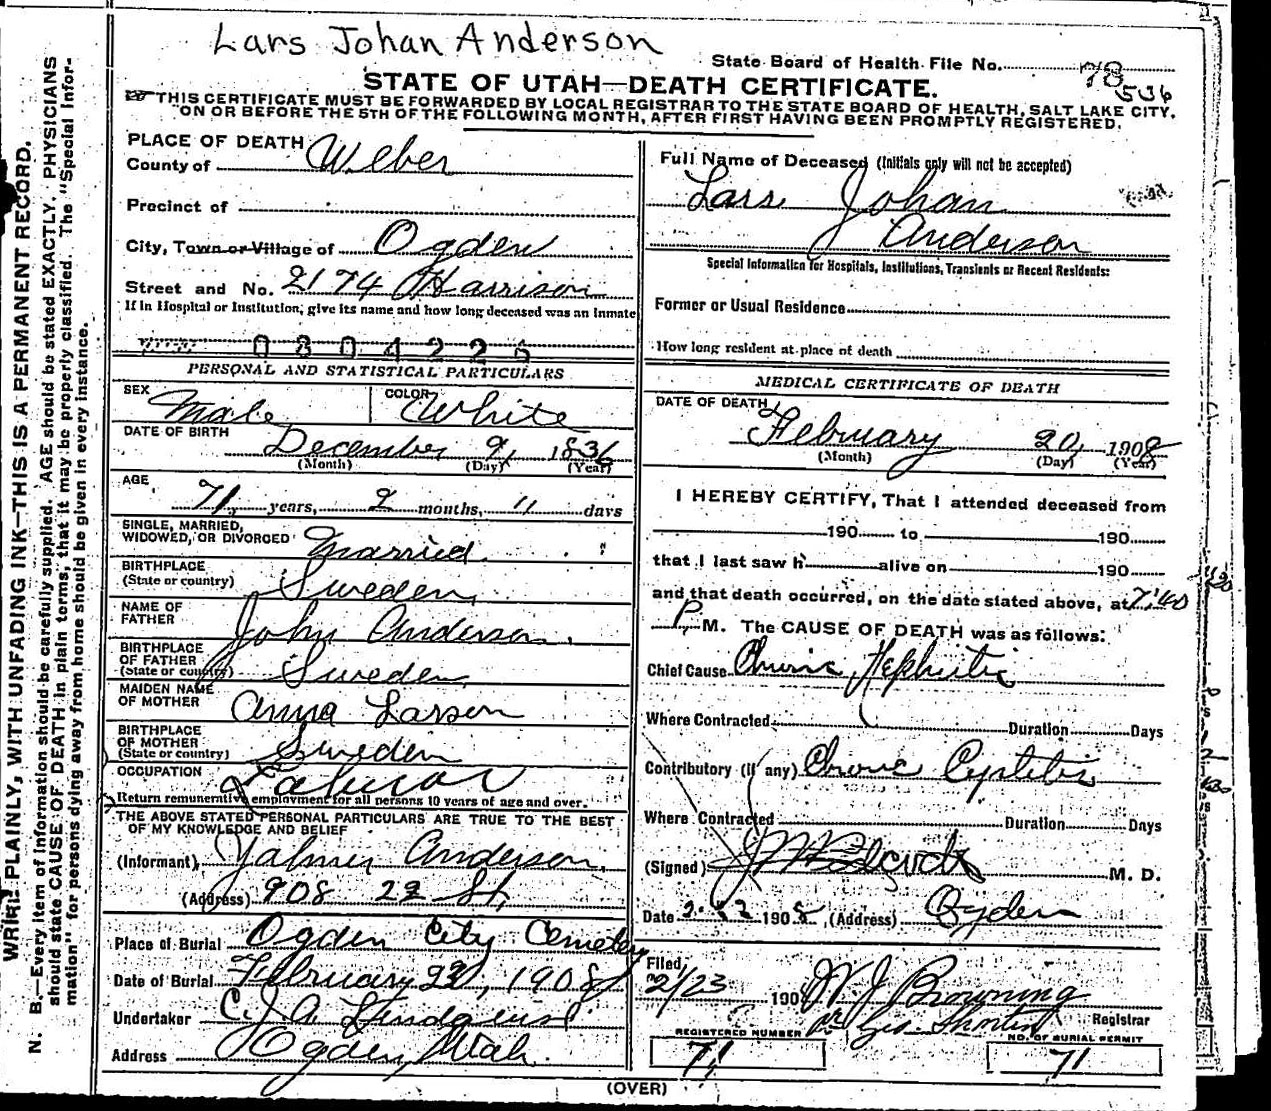 Lars Johan Anderson
State Board of Health File No. 78
536
STATE OF UTAH—DEATH CERTIFICATE.
THIS CERTIFICATE MUST BE FORWARDED BY LOCAL REGISTRAR TO THE STATE BOARD OF HEALTH, SALT LAKE CITY,
ON OR BEFORE THE 5TH OF THE FOLLOWING MONTH, AFTER FIRST HAVING BEEN PROMPTLY REGISTERED.
WRITE PLAINLY, WITH UNFADING INK—THIS IS A PERMANENT RECORD.
N. B.—Every item of information should be carefully supplied. AGE should be stated EXACTLY. PHYSICIANS
should state CAUSE OF DEATH in plain terms, that it may be properly classified. The "Special Infor-
mation" for persons dying away from home should be given in every instance.
PLACE OF DEATH
County of Weber
Precinct of
City, Town or Village of Ogden
Street and No. 2174 Harrison
If in Hospital or Institution, give its name and how long deceased was an Inmate
0804226
PERSONAL AND STATISTICAL PARTICULARS
SEX Male COLOR White
DATE OF BIRTH
December 9, 1836
(Month) (Day) (Year)
AGE
71 years, 2 months, 11 days
SINGLE, MARRIED,
WIDOWED, OR DIVORCED Married
BIRTHPLACE
(State or country) Sweden
NAME OF
FATHER John Anderson
BIRTHPLACE
OF FATHER
(State or country) Sweden
MAIDEN NAME
OF MOTHER Anna Larson
BIRTHPLACE
OF MOTHER
(State or country) Sweden
OCCUPATION Laborer
Return remunerative employment for all persons 10 years of age and over.
THE ABOVE STATED PERSONAL PARTICULARS ARE TRUE TO THE BEST
OF MY KNOWLEDGE AND BELIEF
(Informant) Yalmer Anderson
(Address) 908 22 St
Place of Burial Ogden City Cemetery
Date of Burial February 23, 1908
Undertaker C. J. A. Lindquist
Address Ogden, Utah.
Full Name of Deceased (Initials only will not be accepted)
Lars Johan
Anderson
Special Information for Hospitals, Institutions, Transients or Recent Residents:
Former or Usual Residence
How long resident at place of death
MEDICAL CERTIFICATE OF DEATH
DATE OF DEATH
February 20, 1908
(Month) (Day) (Year)
I HEREBY CERTIFY, That I attended deceased from
190 to 190
that I last saw h alive on 190
and that death occurred, on the date stated above, at 7:40
P. M. The CAUSE OF DEATH was as follows:
Chief Cause Chronic Nephritis
Where Contracted Duration Days
Contributory (if any) Chronic Cystitis
Where Contracted Duration Days
(Signed) M. D.
Date 2.22 1908 (Address) Ogden
Filed,
2/23 190 W J Browning
Registrar
pr Geo. Shorten
REGISTERED NUMBER
71
NO. OF BURIAL PERMIT
71
(OVER)